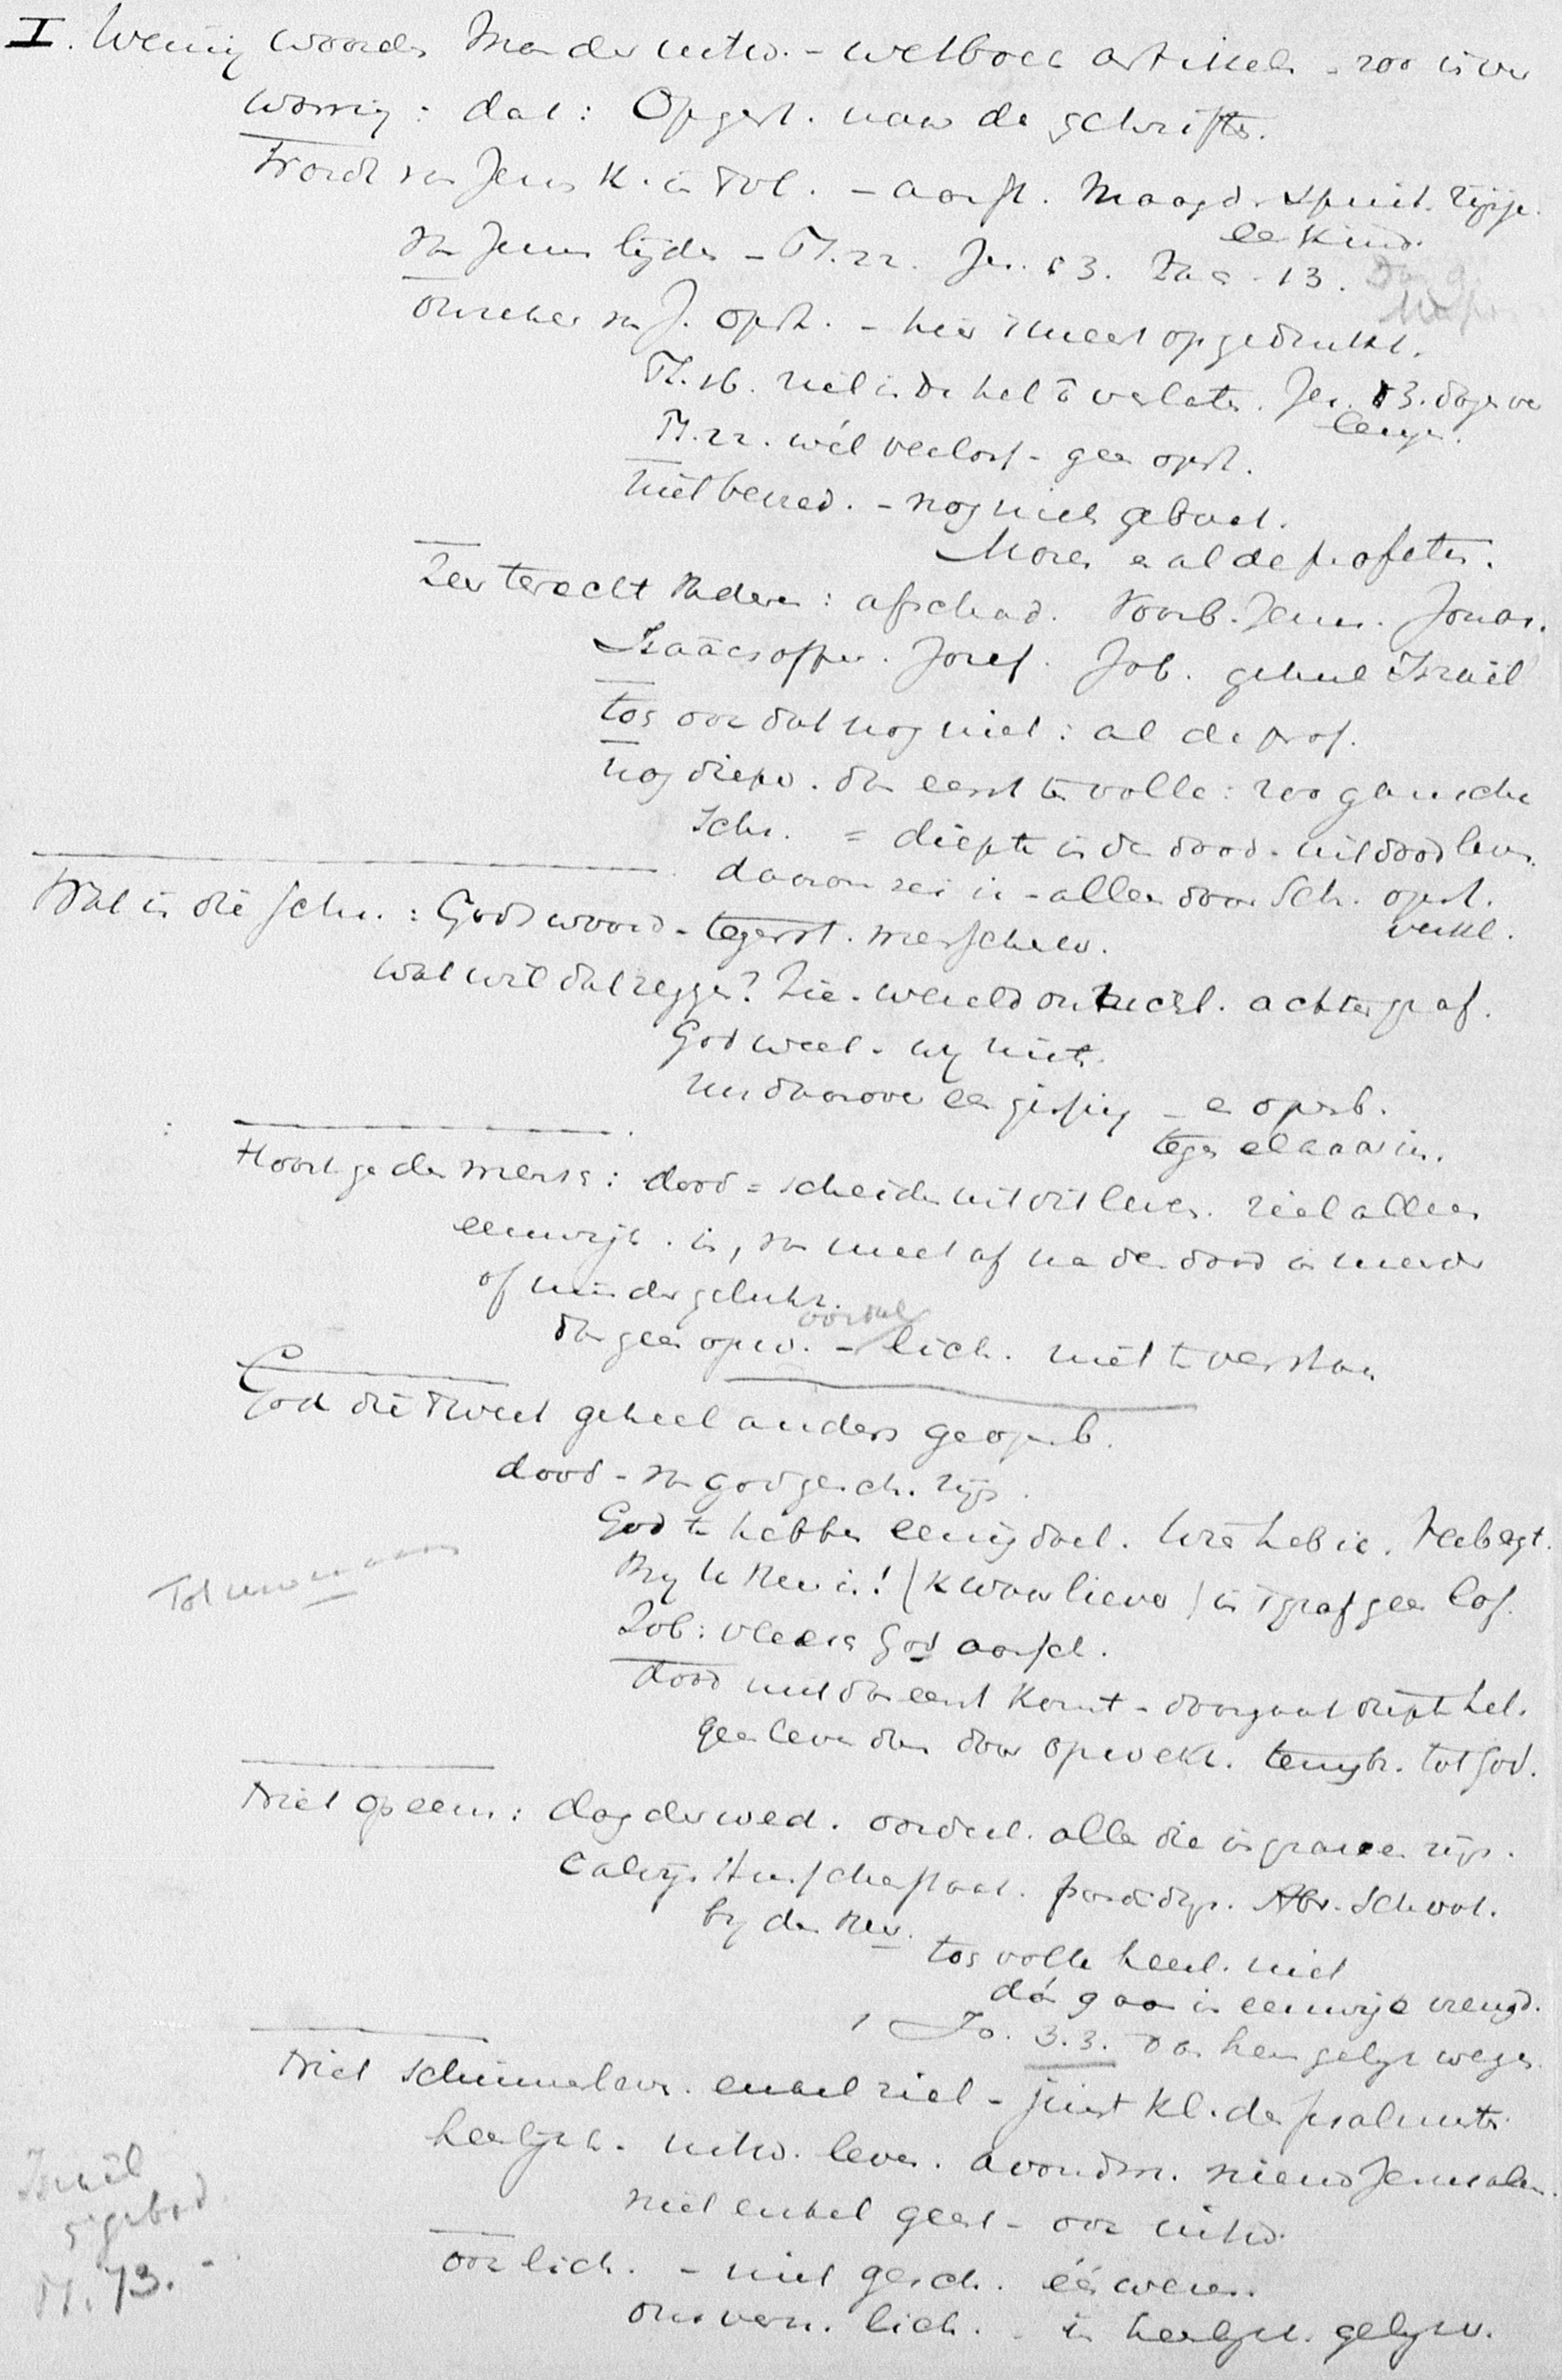 I. Weinig woorden zonder uitw. - wetboek artikelen - zoo is ver
warring: dat: Opgest. naar de schriften.
Wordt van Jezus K. in Tvl. - aank. Maagd. spruit. rijsje.
een Kind.
van Jezus lijden - Ps. 22. Jes. 53. Zac. 13.
van J. opst. - hier 't meest opgedrukt.
Ps. 16. ziel in de hel te verlaten. Jes. 53. dagen ver
lengen.
Ps. 22. wél verlost - geen opst.
niet bevred. - nog niet gebaat.
Mozes en al de profeten.
Zeer terecht Vaderen: afschad. Voorb. Jonas.
Isaäcs offer. Jozef. Job. geheel Israël
tog ook dat nog niet: al de prof.
nog dieper. dan eerst ten volle: zoo gansche
Schr. = diepte in den dood - uit dood leven.
daarom zei ik - alleen door Sch. opst.
verkl.
Wat is die Schr.: Gods woord - tegenst. menschenw.
Wat wil dat zeggen? Zie. wereld onzucht. achter graf.
God weet - wy niet.
Nu daarover een gissing - en openb.
tegen elkaar in.
Hoort ge den mensch: dood = scheiden uit dit leven. ziel alleen
eeuwigh. in, van meet af na den dood in meerder
of minder geluk.
oordeel
dan geen opw. - lich. niet te verstaan
God die 't weet geheel anders geopenb.
dood - van God gesch. zijn.
God te hebben eenig doel. Wie heb ik. Verbergt.
By U Heer is! (k waar liever) in 't graf geen lof.
Job: vleesch God aansch.
dood niet dan eerst komt - doorgaat diepte hel.
geen leven dan door opwekk. terugk. tot God.
Niet op eens: dag der wed. oordeel. alle die in graven zijn.
Calvijn tusschenstaat. paradijs. Abr. Schoot.
by den Heer.
tog volle heerl. niet
dán gaan in eeuwige vreugd.
1 Jo. 3.3. Dan hem gelyk wezen.
Niet schimmenleven. enkel ziel - juist kl. der psalmisten
heerlijkh. uitw. leven. avondm. nieuw Jeruzalem.
niet enkel geest - ook uitw.
ook lich. - niet gesch. één wezen.
ons vern. lich. - in heerlijkh. gelijkv.
Israël
5e gebod.
Ps. 73. -